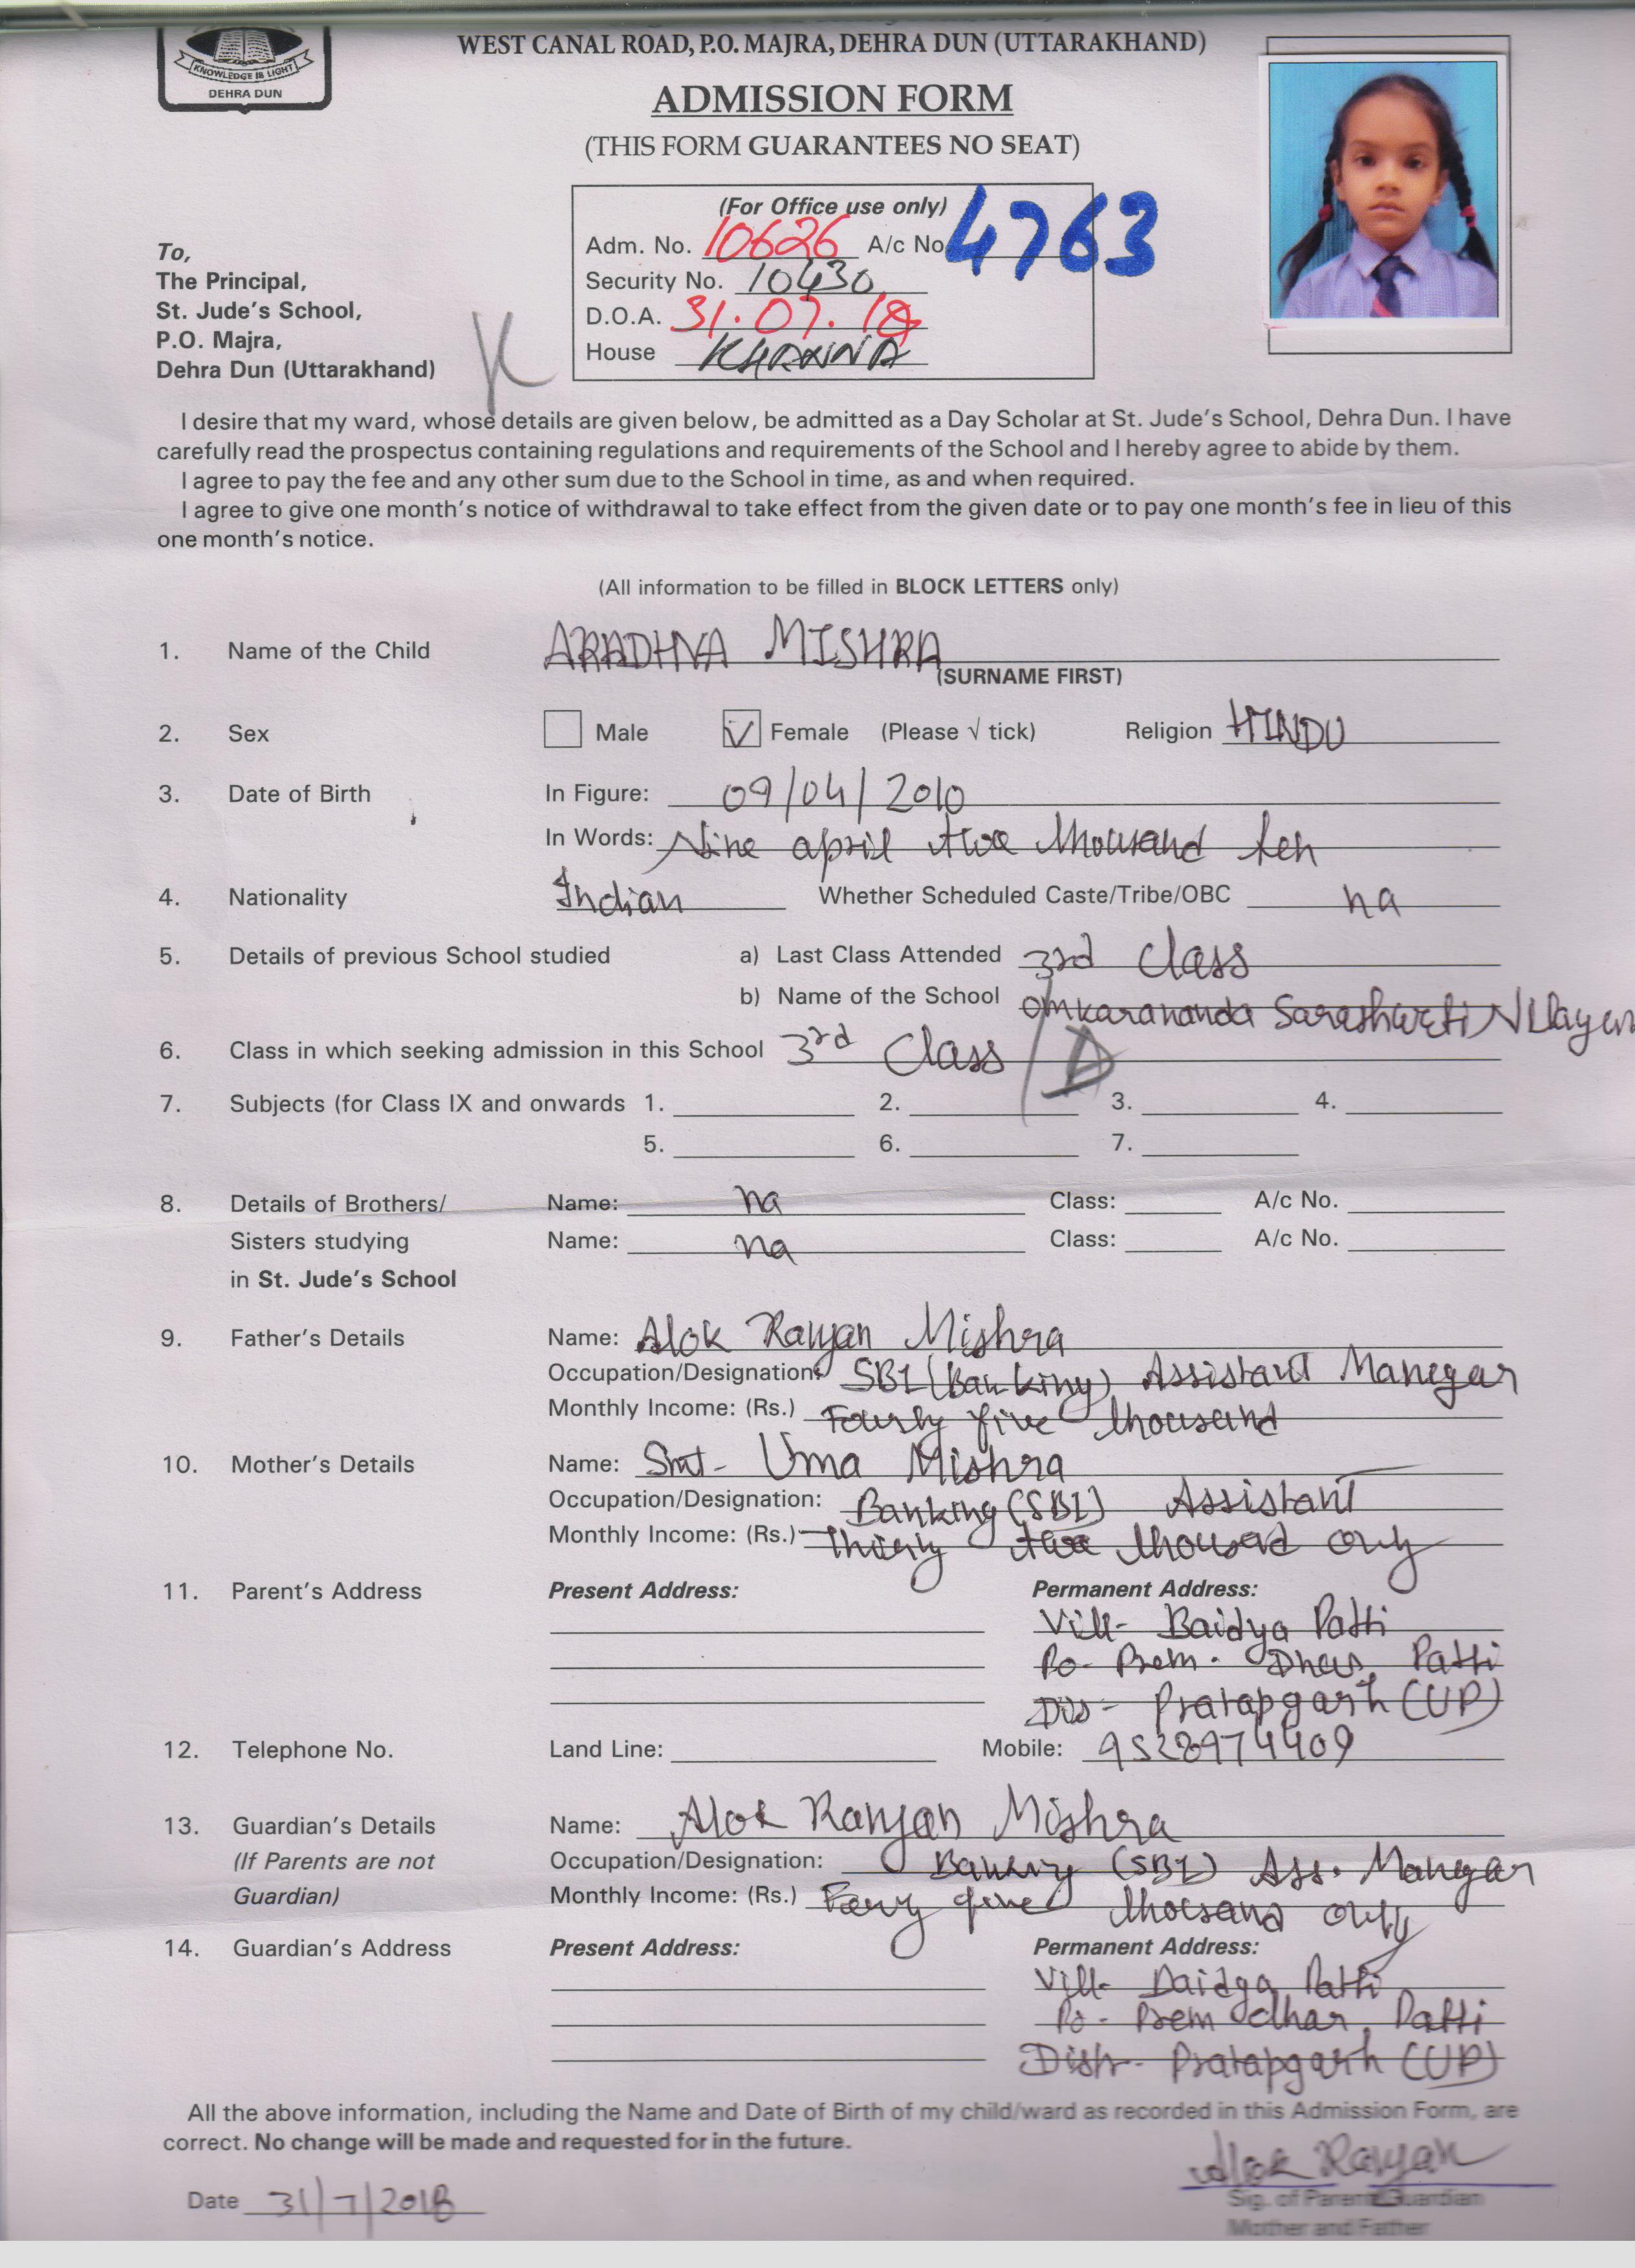 KNOWLEDGE IS LIGHT
DEHRA DUN
WEST CANAL ROAD, P.O. MAJRA, DEHRA DUN (UTTARAKHAND)
ADMISSION FORM
(THIS FORM GUARANTEES NO SEAT)
(For Office use only)
Adm. No. 10626 A/c No. 4763
Security No. 10430
D.O.A. 31.07.18
House KHANNA
To,
The Principal,
St. Jude's School,
P.O. Majra,
Dehra Dun (Uttarakhand)
I desire that my ward, whose details are given below, be admitted as a Day Scholar at St. Jude's School, Dehra Dun. I have
carefully read the prospectus containing regulations and requirements of the School and I hereby agree to abide by them.
I agree to pay the fee and any other sum due to the School in time, as and when required.
I agree to give one month's notice of withdrawal to take effect from the given date or to pay one month's fee in lieu of this
one month's notice.
(All information to be filled in BLOCK LETTERS only)
1. Name of the Child ARADHNA MISHRA
(SURNAME FIRST)
2. Sex Male Female (Please √ tick) Religion HINDU
3. Date of Birth In Figure: 09/04/2010
In Words: Nine april two thousand ten
4. Nationality Indian Whether Scheduled Caste/Tribe/OBC na
5. Details of previous School studied a) Last Class Attended 3rd class
b) Name of the School Omkarananda
6. Class in which seeking admission in this School 3rd Class / D
7. Subjects (for Class IX and onwards 1. 2. 3. 4.
5. 6. 7.
8. Details of Brothers/ Name: na Class: A/c No.
Sisters studying Name: na Class: A/c No.
in St. Jude's School
9. Father's Details Name: Alok Ranjan Mishra
Occupation/Designation: SBI (Banking) Assistant Manegar
Monthly Income: (Rs.) five thousand
10. Mother's Details Name: Smt- Uma Mishra
Occupation/Designation: Banking (SBI) Assistant
Monthly Income: (Rs.) two thousad only
11. Parent's Address Present Address: Permanent Address:
Vill- Baidya Patti
Po- Prem. Dhar Patti
Dis- Pratapgarh (UP)
12. Telephone No. Land Line: Mobile: 9528974409
13. Guardian's Details Name: Alok Ranjan Mishra
(If Parents are not Occupation/Designation: (SBI) Ass. Manegar
Guardian) Monthly Income: (Rs.) five only
14. Guardian's Address Present Address: Permanent Address:
Vill- Patti
Po- Prem dhar, Patti
Distr- Pratapgarh (UP)
All the above information, including the Name and Date of Birth of my child/ward as recorded in this Admission Form, are
correct. No change will be made and requested for in the future.
Alok Ranjan
Date 31/7/2018
Sig. of Parent Guardian
Mother and Father